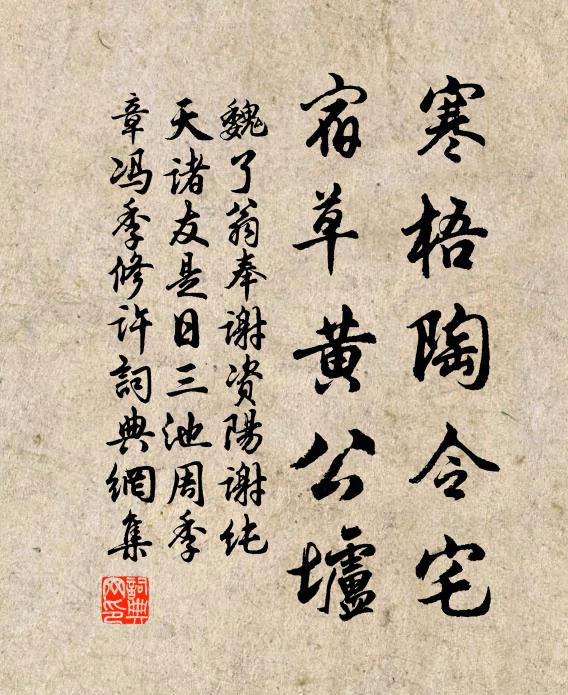 寒梧陶令宅
宿草黄公壚
魏了翁奉谢资陽谢纯
天诸友是日三池周季
章冯季修许詞典網集
詞典網印